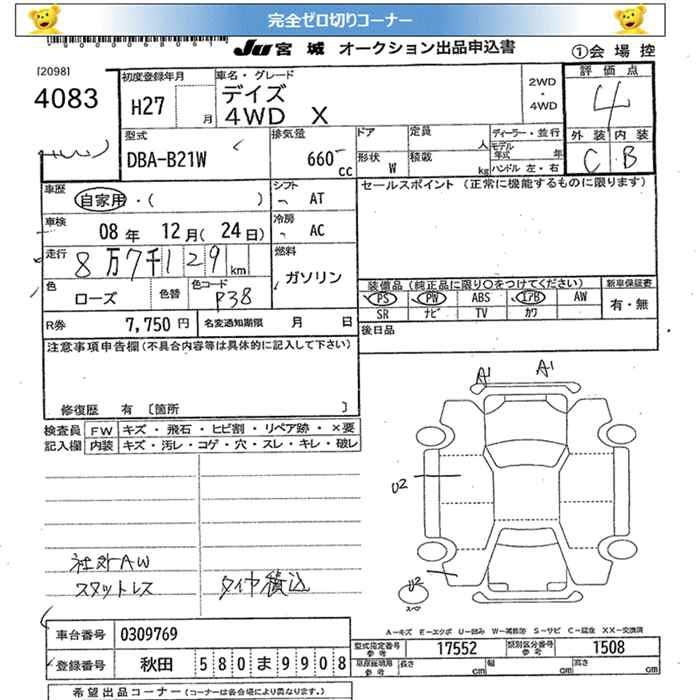 完全ゼロ切りコーナー
JU宮城 オークション出品申込書 ①会場控
[2098]
4083
初度登録年月 H27 月
車名・グレード
デイズ
4WD X
2WD
・
4WD
評価点
4
外装 内装
C B
型式
DBA-B21W
排気量
660 cc
ドア 定員 人
形状 W 積載 kg
ディーラー・並行
モデル年式 年
ハンドル 左・右
車歴
自家用・( )
シフト
AT
セールスポイント (正常に機能するものに限ります)
車検
08年 12月(24日)
冷房
AC
走行
8万7千129km
燃料
ガソリン
色
ローズ
色替
色コード
P38
装備品 (純正品に限り○をつけてください) 新車保証書
PS PW ABS エアB AW 有・無
SR ナビ TV カワ
R券 7,750円 名変通知期限 月 日
後日品
注意事項申告欄(不具合内容等は具体的に記入して下さい)
修復歴 有 〔箇所 〕
検査員 FW キズ・飛石・ヒビ割・リペア跡・×要
記入欄 内装 キズ・汚レ・コゲ・穴・スレ・キレ・破レ
A1 A1
U2
U2
スペア
社外AW
スタットレス タイヤ積込
A-キズ E-エクボ U-凹み W-補修跡 S-サビ C-腐食 XX-交換済
車台番号 0309769
型式指定番号 参考 17552 類別区分番号 参考 1508
登録番号 秋田 580ま9908
長さ cm 幅 cm 高さ cm
希望出品コーナー (コーナーは各会場により異なります。)